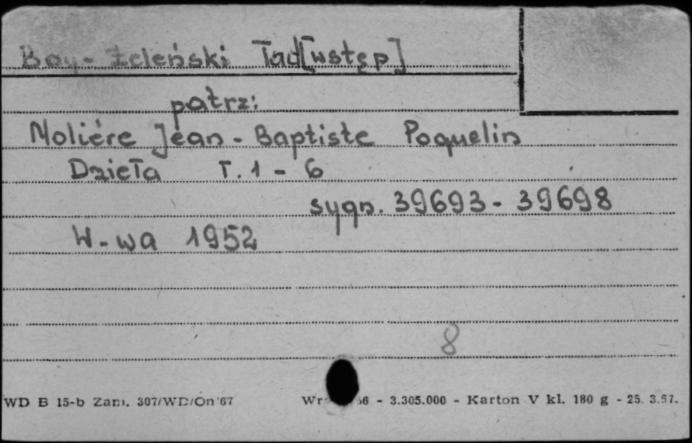 Boy-Żeleński Tad[wstęp]
patrz:
Moliére Jean-Baptiste Poquelin
Dzieła T. 1 - 6
sygn. 39693 - 39698
W-wa 1952
8
WD B 15-b Zam. 307/WD/On/67 - 3.305.000 - Karton V kl. 180 g - 25. 3.57.